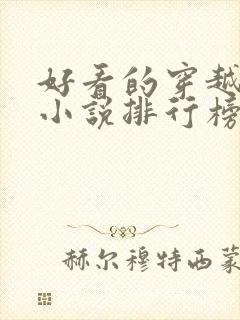 好看的穿越
小说排行榜
赫尔穆特西蒙